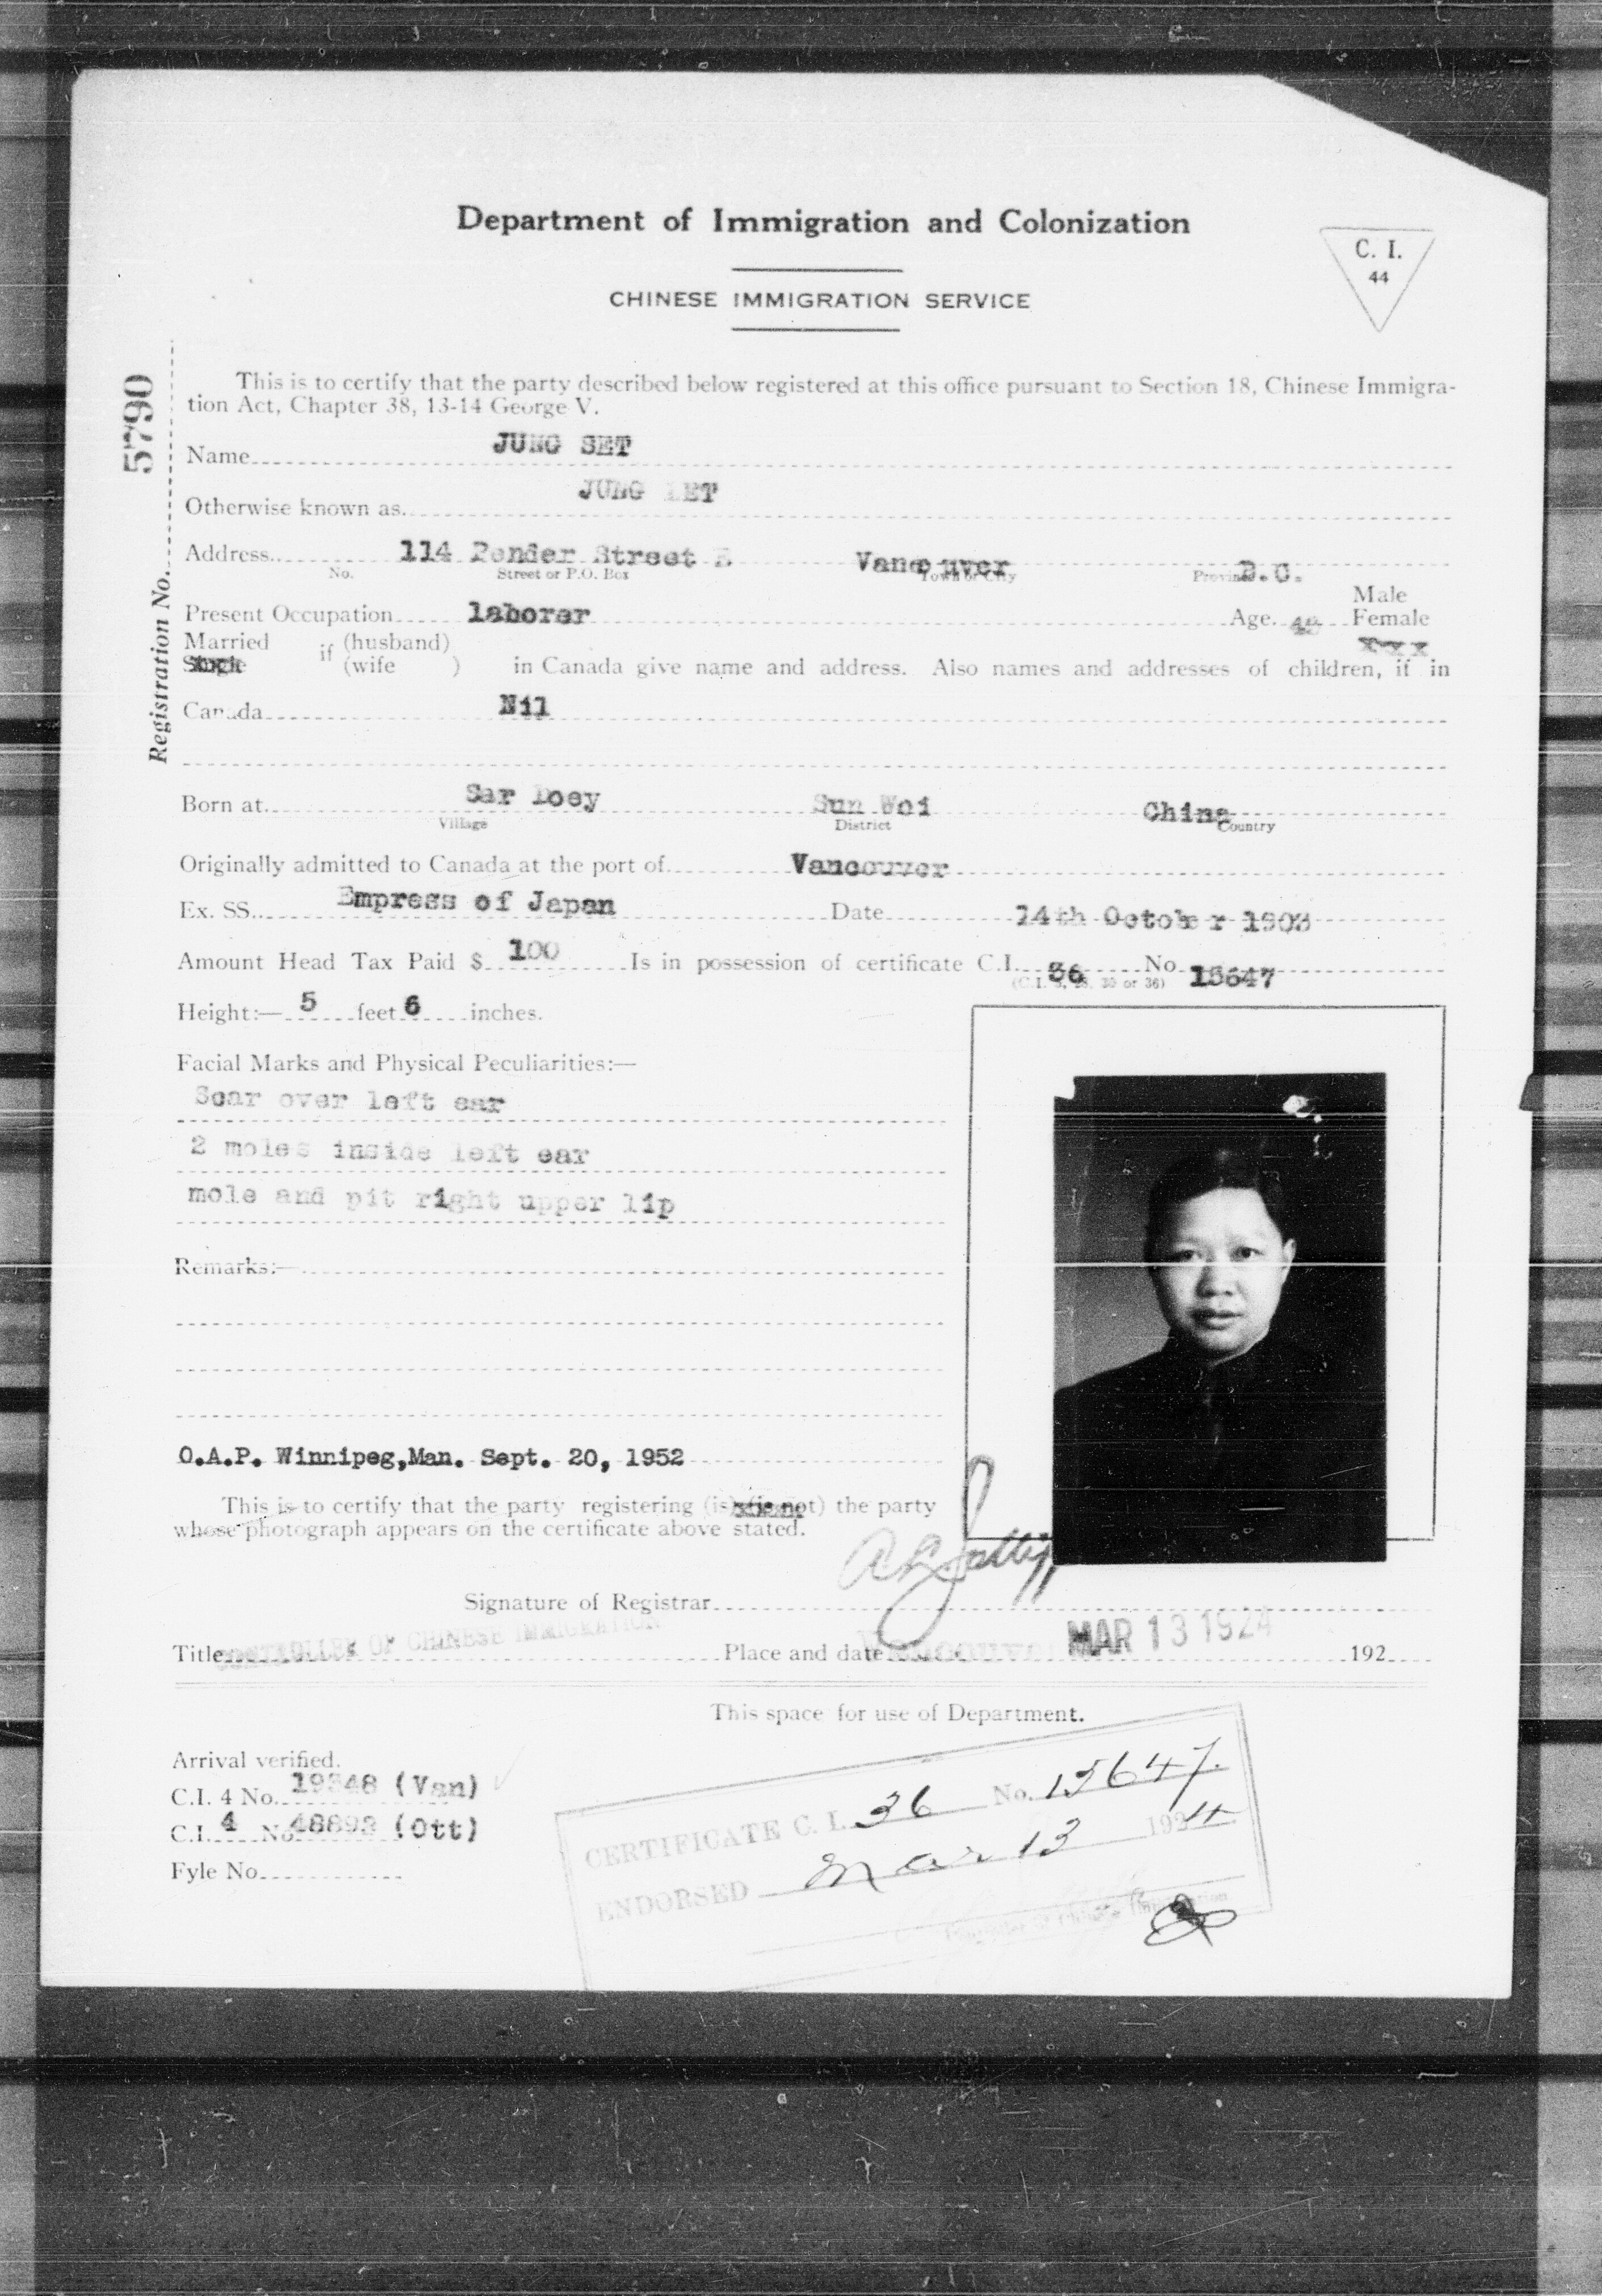 Department of Immigration and Colonization
C. I.
44
CHINESE IMMIGRATION SERVICE
Registration No. 5790
This is to certify that the party described below registered at this office pursuant to Section 18, Chinese Immigra-
tion Act, Chapter 38, 13-14 George V.
Name JUNG SET
Otherwise known as JUNG LET
Address 114 Pender Street E Vancouver B.C.
No. Street or P.O. Box Town or City Province
Male
Present Occupation laborer Age Female
Married if (husband)
Single (wife ) in Canada give name and address. Also names and addresses of children, if in
Canada Nil
Born at Sar Doey Sun Woi China
Village District Country
Originally admitted to Canada at the port of Vancouver
Ex. SS. Empress of Japan Date 14th October 1903
Amount Head Tax Paid $ 100 Is in possession of certificate C.I. 36 No 15647
Height:— 5 feet 6 inches.
Facial Marks and Physical Peculiarities:—
Scar over left ear
2 moles inside left ear
mole and pit right upper lip
Remarks:—
O.A.P. Winnipeg,Man. Sept. 20, 1952
This is to certify that the party registering (is) (is not) the party
whose photograph appears on the certificate above stated.
Signature of Registrar
Title CONTROLLER OF CHINESE IMMIGRATION Place and date Vancouver MAR 13 1924 192
This space for use of Department.
Arrival verified.
C.I. 4 No. (Van)
C.I. 4 No (Ott)
Fyle No.
CERTIFICATE C. I. 36 No. 15647.
ENDORSED Mar 13 1924
Controller of Chinese Immigration